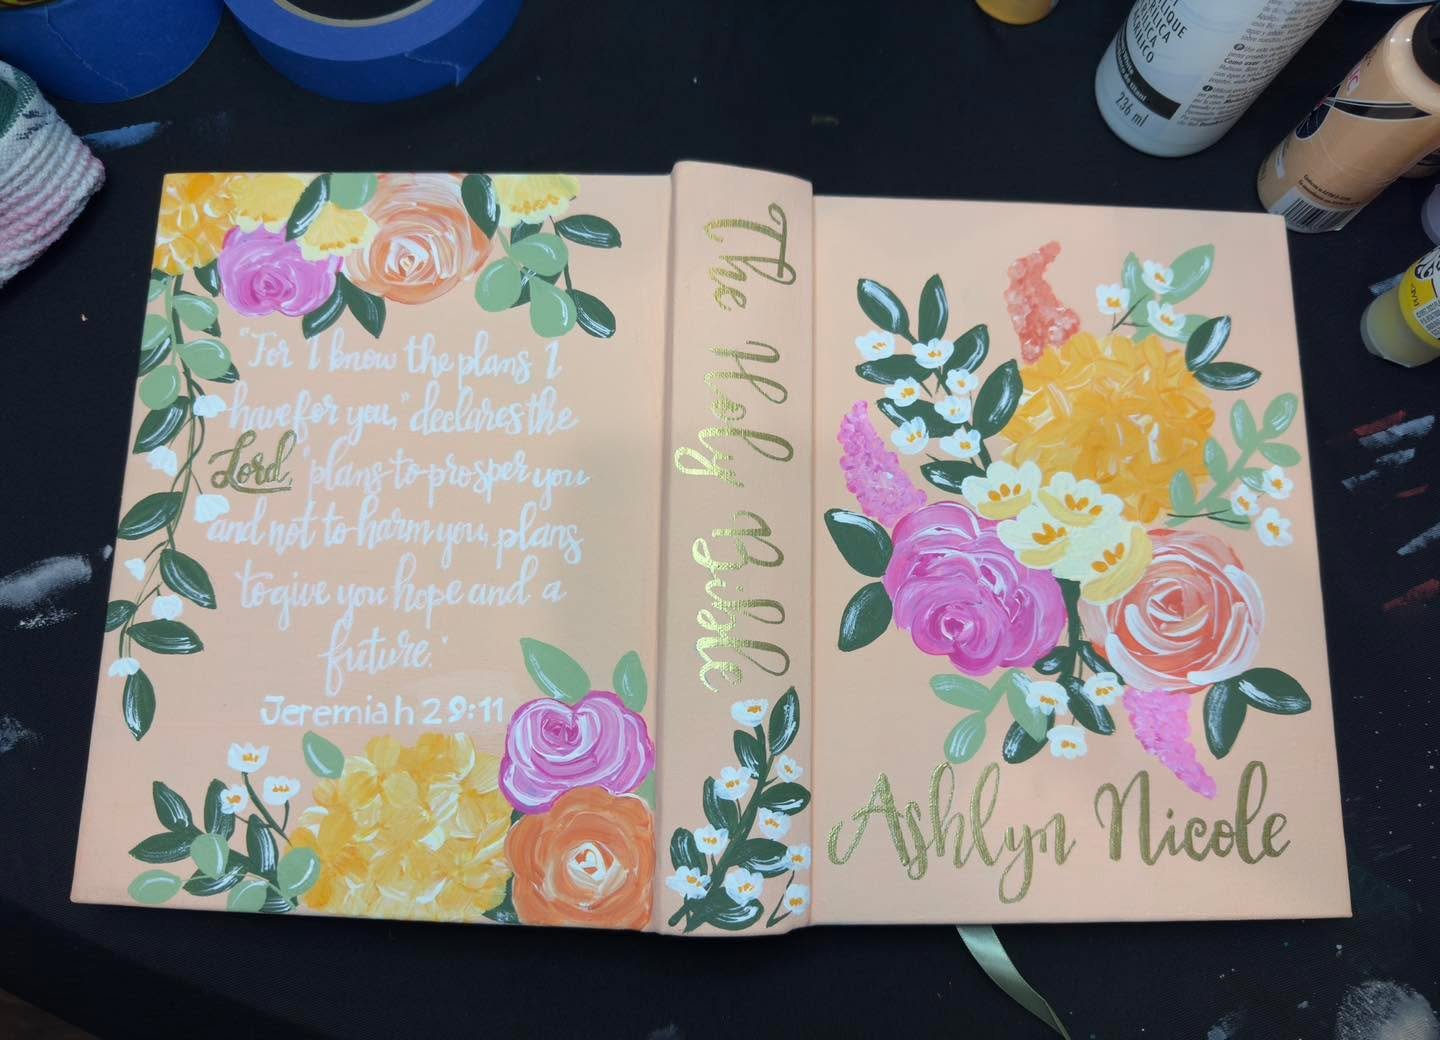 "For I know the plans I
have for you," declares the
Lord, "plans to prosper you
and not to harm you, plans
to give you hope and a
future."
Jeremiah 29:11
The Holy Bible
Ashlyn Nicole
236 ml